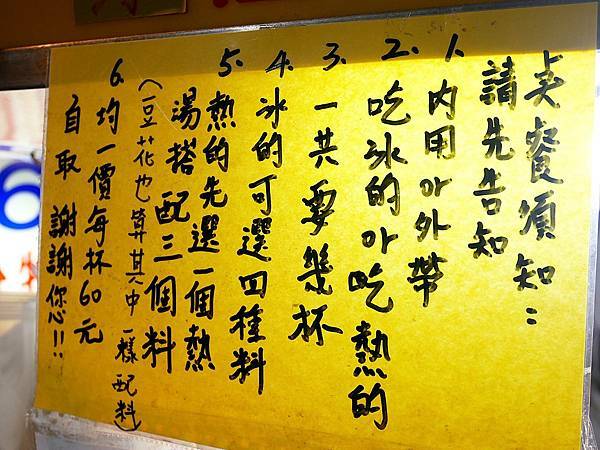 點餐須知：
請先告知
1. 內用or外帶
2. 吃冰的or吃熱的
3. 一共要幾杯
4. 冰的可選四種料
5. 熱的先選一個熱
湯搭配三個料
(豆花也算其中一樣配料)
6. 均一價每杯60元
自取 謝謝您!!
6